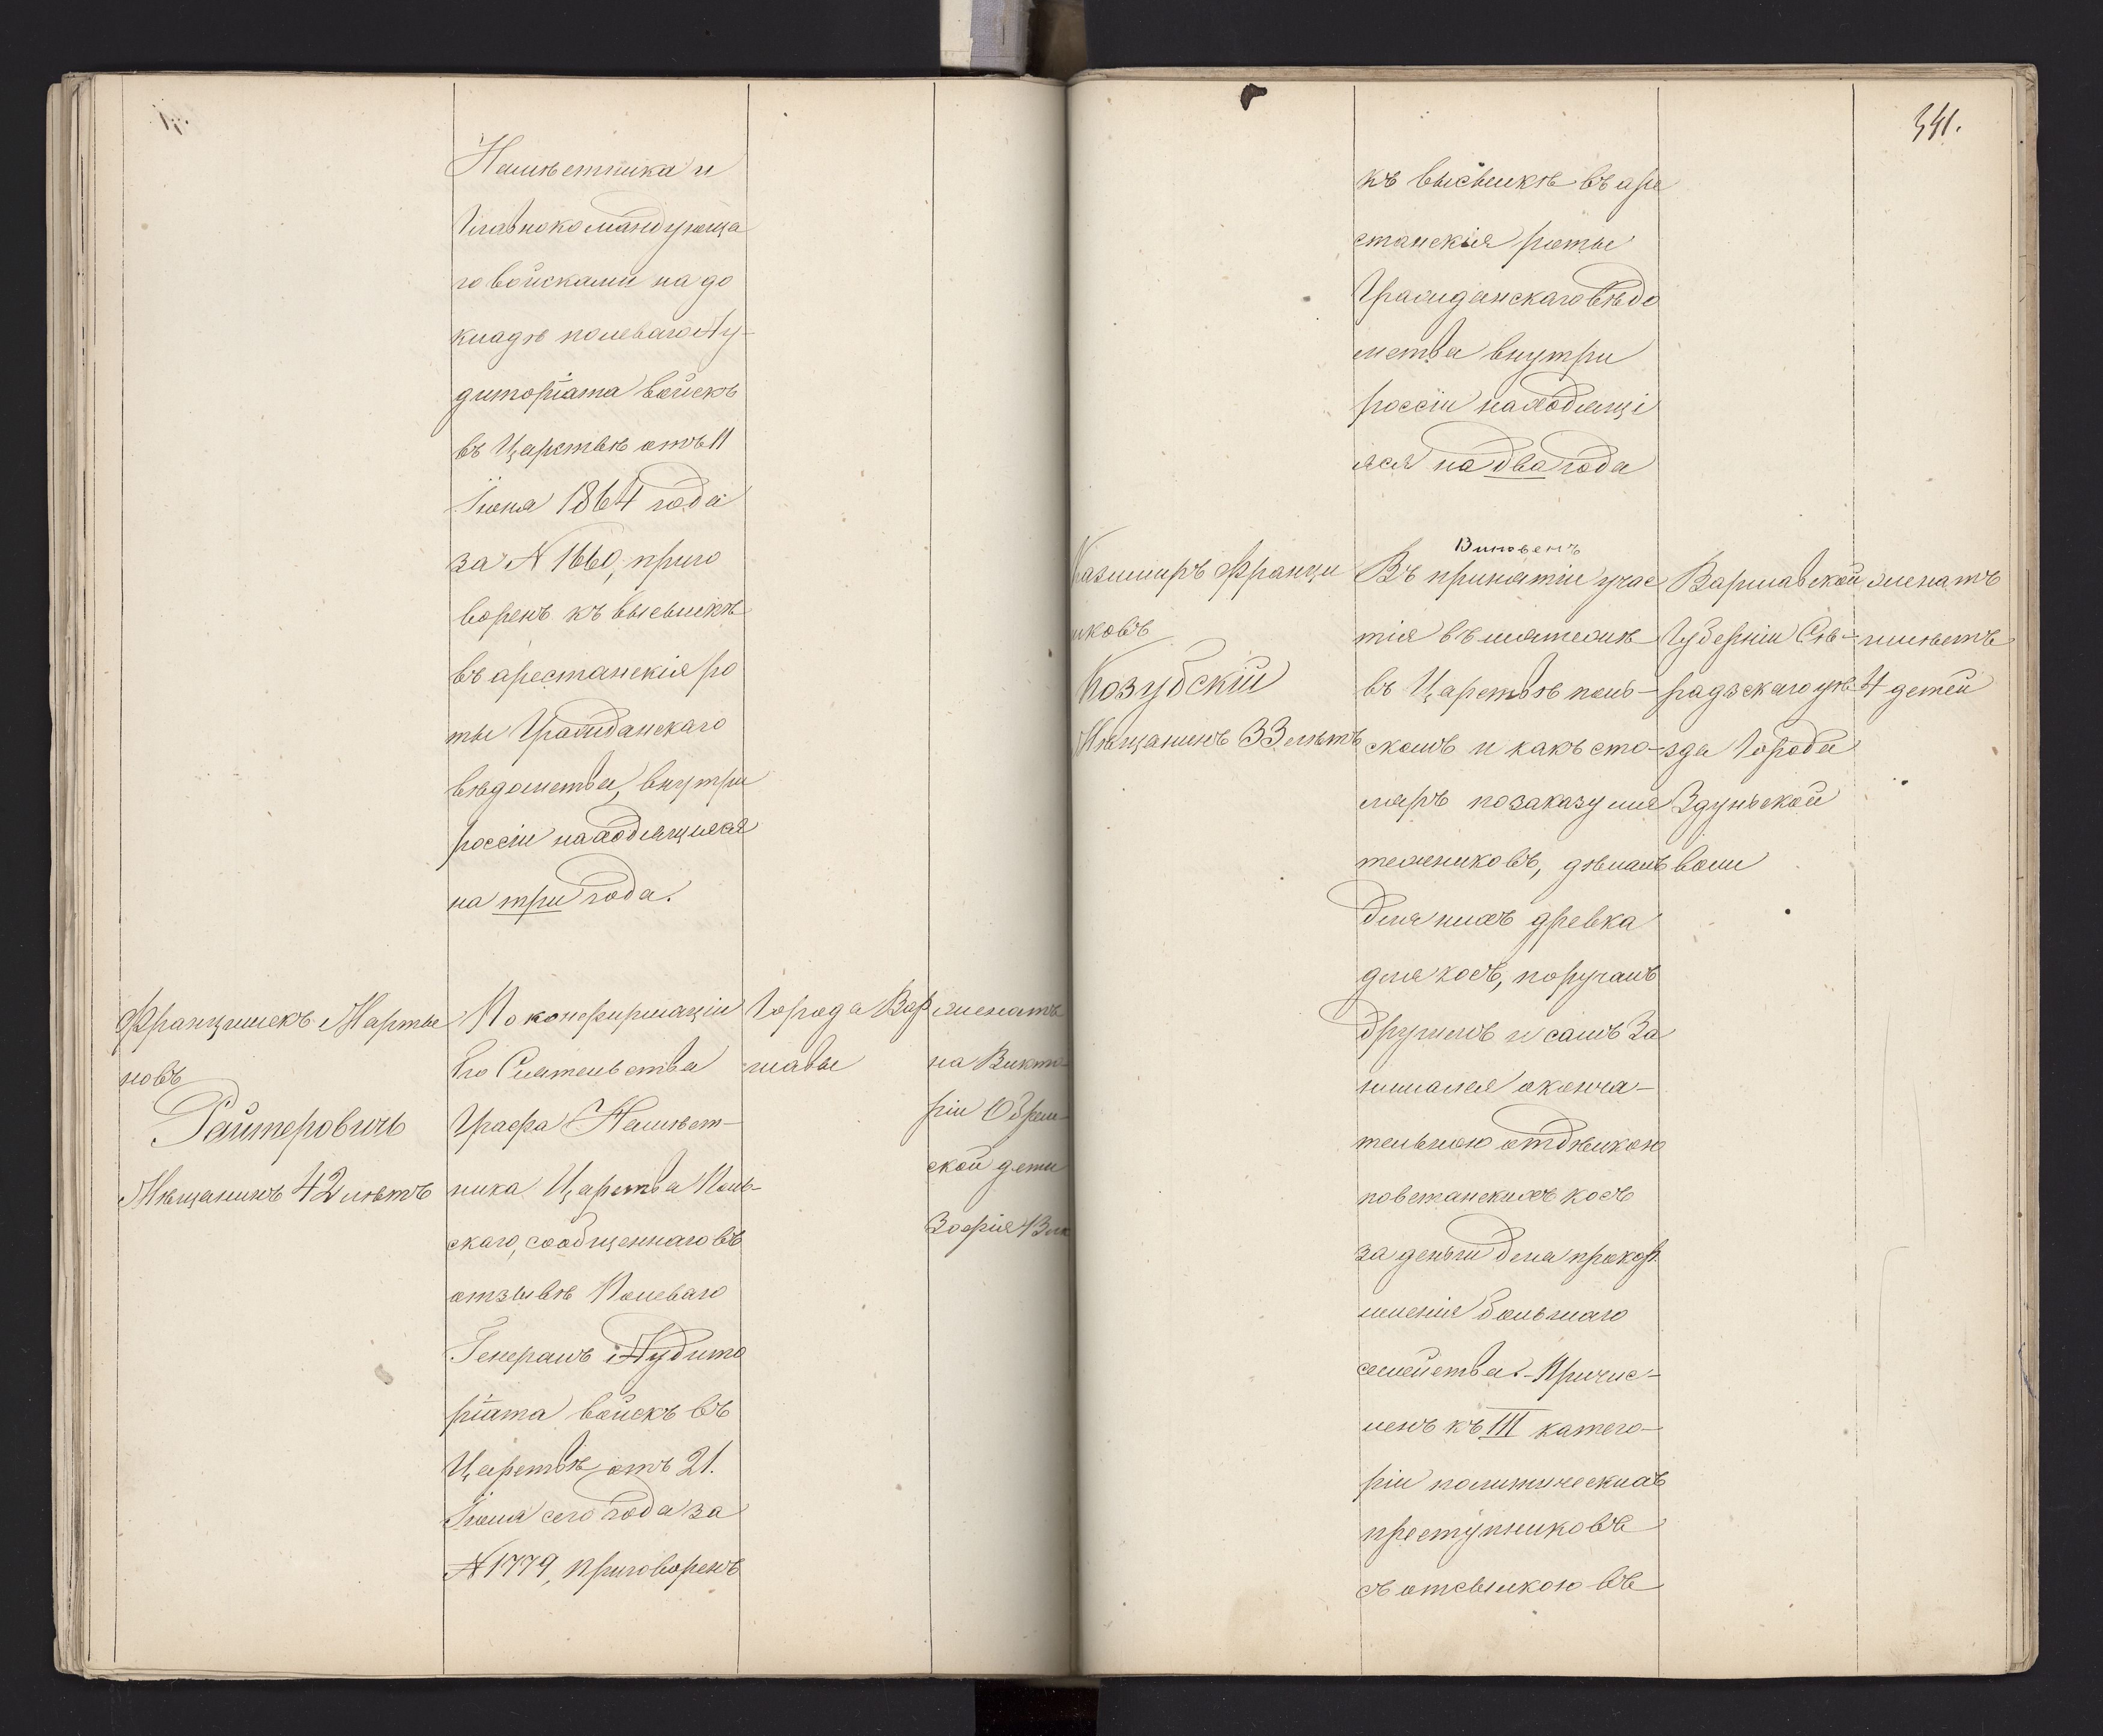 Намѣстника и
Главнокомандующа
го войсками на до
кладѣ полеваго Ау-
диторіата войскъ
въ Царствѣ отъ 11
Іюня 1864 года
за N 1660, приго
воренъ къ высылкѣ
въ арестанскія ро
ты Гражданскаго
вѣдомства, внутри
россіи находящіяся
на три года.
Францишекъ Марты
новъ
Райтеровичъ
Мѣщанинъ 42 лѣтъ
По конфирмаціи
Его Сіятельства
Графа Намѣст-
ника Царства Поль-
скаго, сообщеннаго въ
отзывѣ Полеваго
Генералъ Аудито
ріата войскъ въ
Царствѣ отъ 21.
Іюня сего года за
N 1779, приговоренъ
Города Вар
шавы
женатъ
на Викто
ріи
ской дети
Зофія 13 лѣ
341.
къ высылкѣ въ аре
станскія роты
Гражданскаго вѣдо
мства внутри
россіи находящі
яся на два года
Казимиръ Франци
шковъ
Козубскій
Мѣщанинъ 33 лѣтъ
Виновенъ
Въ принятіи учас
тія въ мятежѣ
въ Царствѣ поль-
скомъ и какъ сто-
ляръ по заказу мя
тежниковъ, дѣлалъ
для нихъ древка
для косъ, поручалъ
другимъ и самъ За
нимался оконча-
тельною отдѣлкою
повстанскихъ косъ
за деньги для прокор
мленія больнаго
семейства. - Причис-
ленъ къ III катего-
ріи политическихъ
преступниковъ
съ отсылкою въ
Варшавской
Губерніи Сѣ-
радзскаго уѣ-
зда Города
Здуньской
воли
женатъ
имѣетъ
4 детей